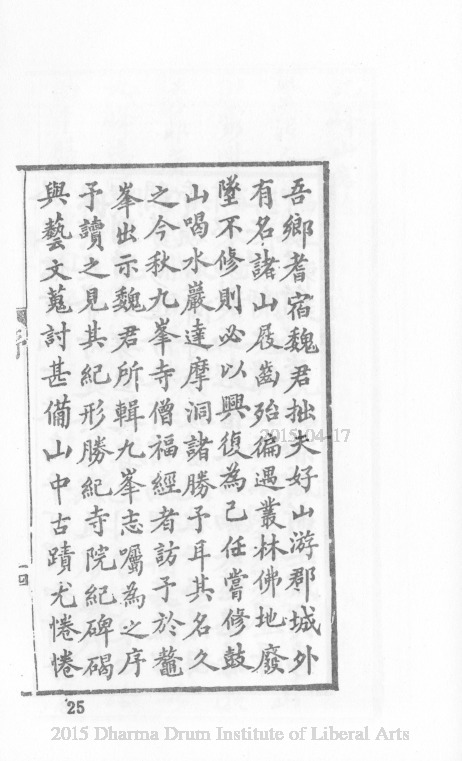 吾鄉耆宿魏君拙夫好山游郡城外
有名諸山屐齒殆徧遇叢林佛地廢
墜不修則必以興復為己任嘗修鼓
山喝水巖達摩洞諸勝予耳其名久
之今秋九峯寺僧福經者訪予於鼇
峯出示魏君所輯九峯志囑為之序
予讀之見其紀形勝紀寺院紀碑碣
與藝文蒐討甚備山中古蹟尤惓惓
序
一四
25
2015/04/17
2015 Dharma Drum Institute of Liberal Arts